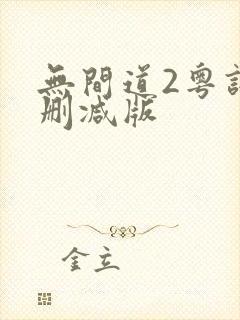 無間道2粵語
刪減版
金立